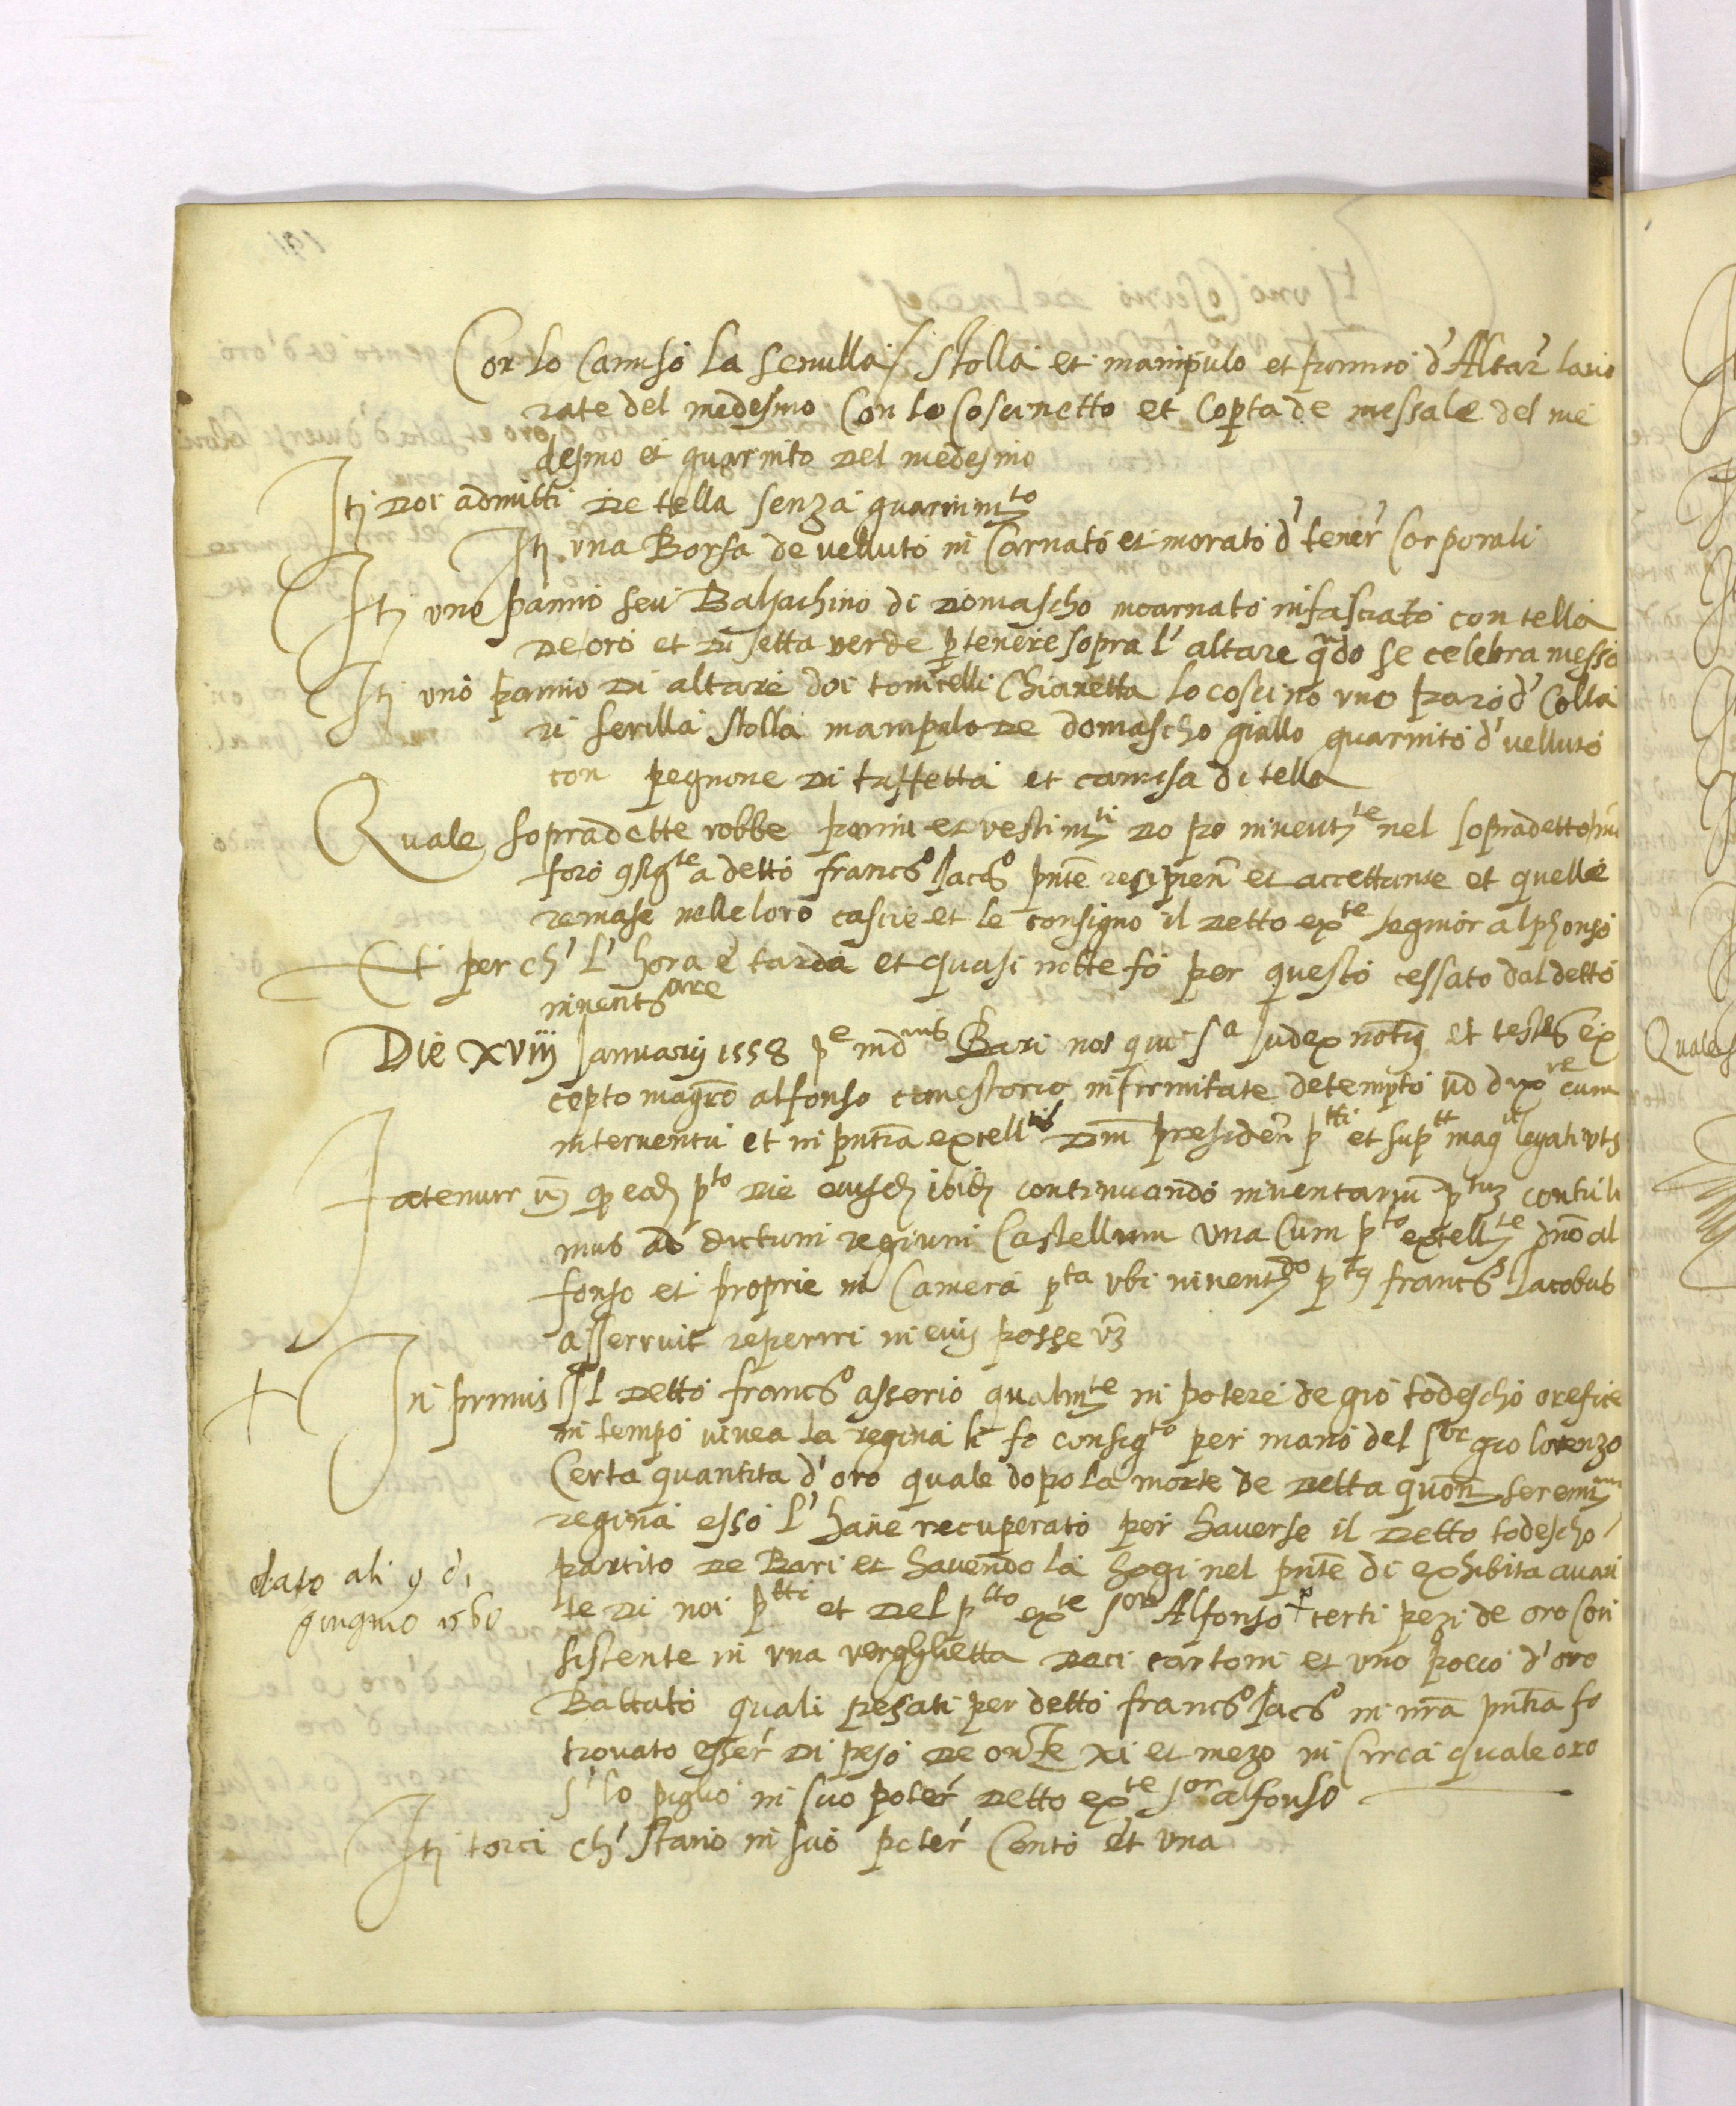 Con lo Camiso la senulla / stolla et manipulo et panno d'Altar' lauo
rate del medesmo Con lo Coscinetto et Coperta de messale del me
desmo et guarnito del medesmo
Itj doi admitti de tella senza guarnimto
Itj una Borsa de velluto in Carnato et morato d' tener' Corporali
Itj uno panno seu Baldachino di domascho incarnato infasciato con tella
de oro et di setta verde p tenere sopra l' altare qndo se celebra messa
Itj uno panno di altare doi tonicelli Chianetta lo coscino uno paro d' Colla
ri serilla stolla manipulo de domascho giallo guarnito d' velluto
con pegnone di taffetta et camisa di tella
Quale sopradette robbe panni et vestimti dopo inventte nel sopradetto
foro gsigte a detto francso Jacso pnte recipien et accettante et quelle
remase nelle loro cascie et le consigno il detto exte segnior alphonso
Et per ch' l' hora e tarda et quasi notte fo per questo cessato dal detto
inventsare
Die xviiij Januarij 1558 pe indnis Bari nos qui sa Judex notus et testes ex
cepto magco alfonso infirmitate detempto
interventu et in pntia excelltis dni presiden ptti et suptt mag legati uts
fatemur q eodj pto die eiusdj ibidj continuando inventariu ptuz contuli
mus ad dictum regium Castellum una Cum pto excellte dno al
fonso et proprie in Camera pta ubi inventdo ptus francs Jacobus
asseruit reperiri in eius posse vz
In primis Il detto francso asserio qualmte in potere de gio todescho orefice
in tempo vivea la regina li fo consigto per mano del sor gio lorenzo
Certa quantita d' oro quale dopo la morte de detta quon serenima
regina esso l' have recuperato per haverse il detto todescho
partito de Bari et havendo la hogi nel pnte di exhibita avan
te di noi ptti et del ptto exte sor Alfonso certi pezi de oro con
sistente in una verghietta deci cartoni et uno pocco d' oro
Battuto quali pesati per detto francso Jacso in nra pntia fo
trovato esser' di peso de onze xi et mezo in Circa quale oro
s' lo piglio in suo poter' detto exte sor alfonso
Itj torci ch' stano in suo poter' Cento et una
dato ali 9 di
giugnio 1560